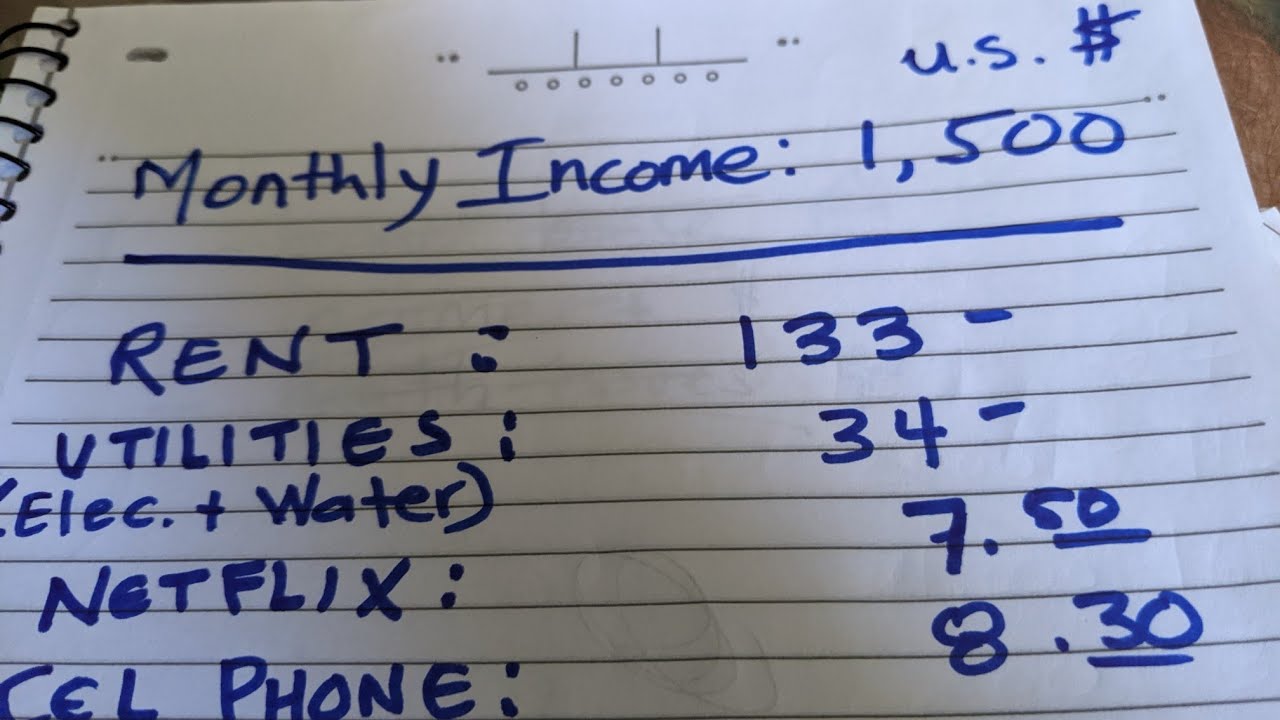 U.S. #
Monthly Income: 1,500
RENT : 133 -
UTILITIES : 34 -
(Elec. + Water)
NETFLIX : 7.50
CEL PHONE : 8.30